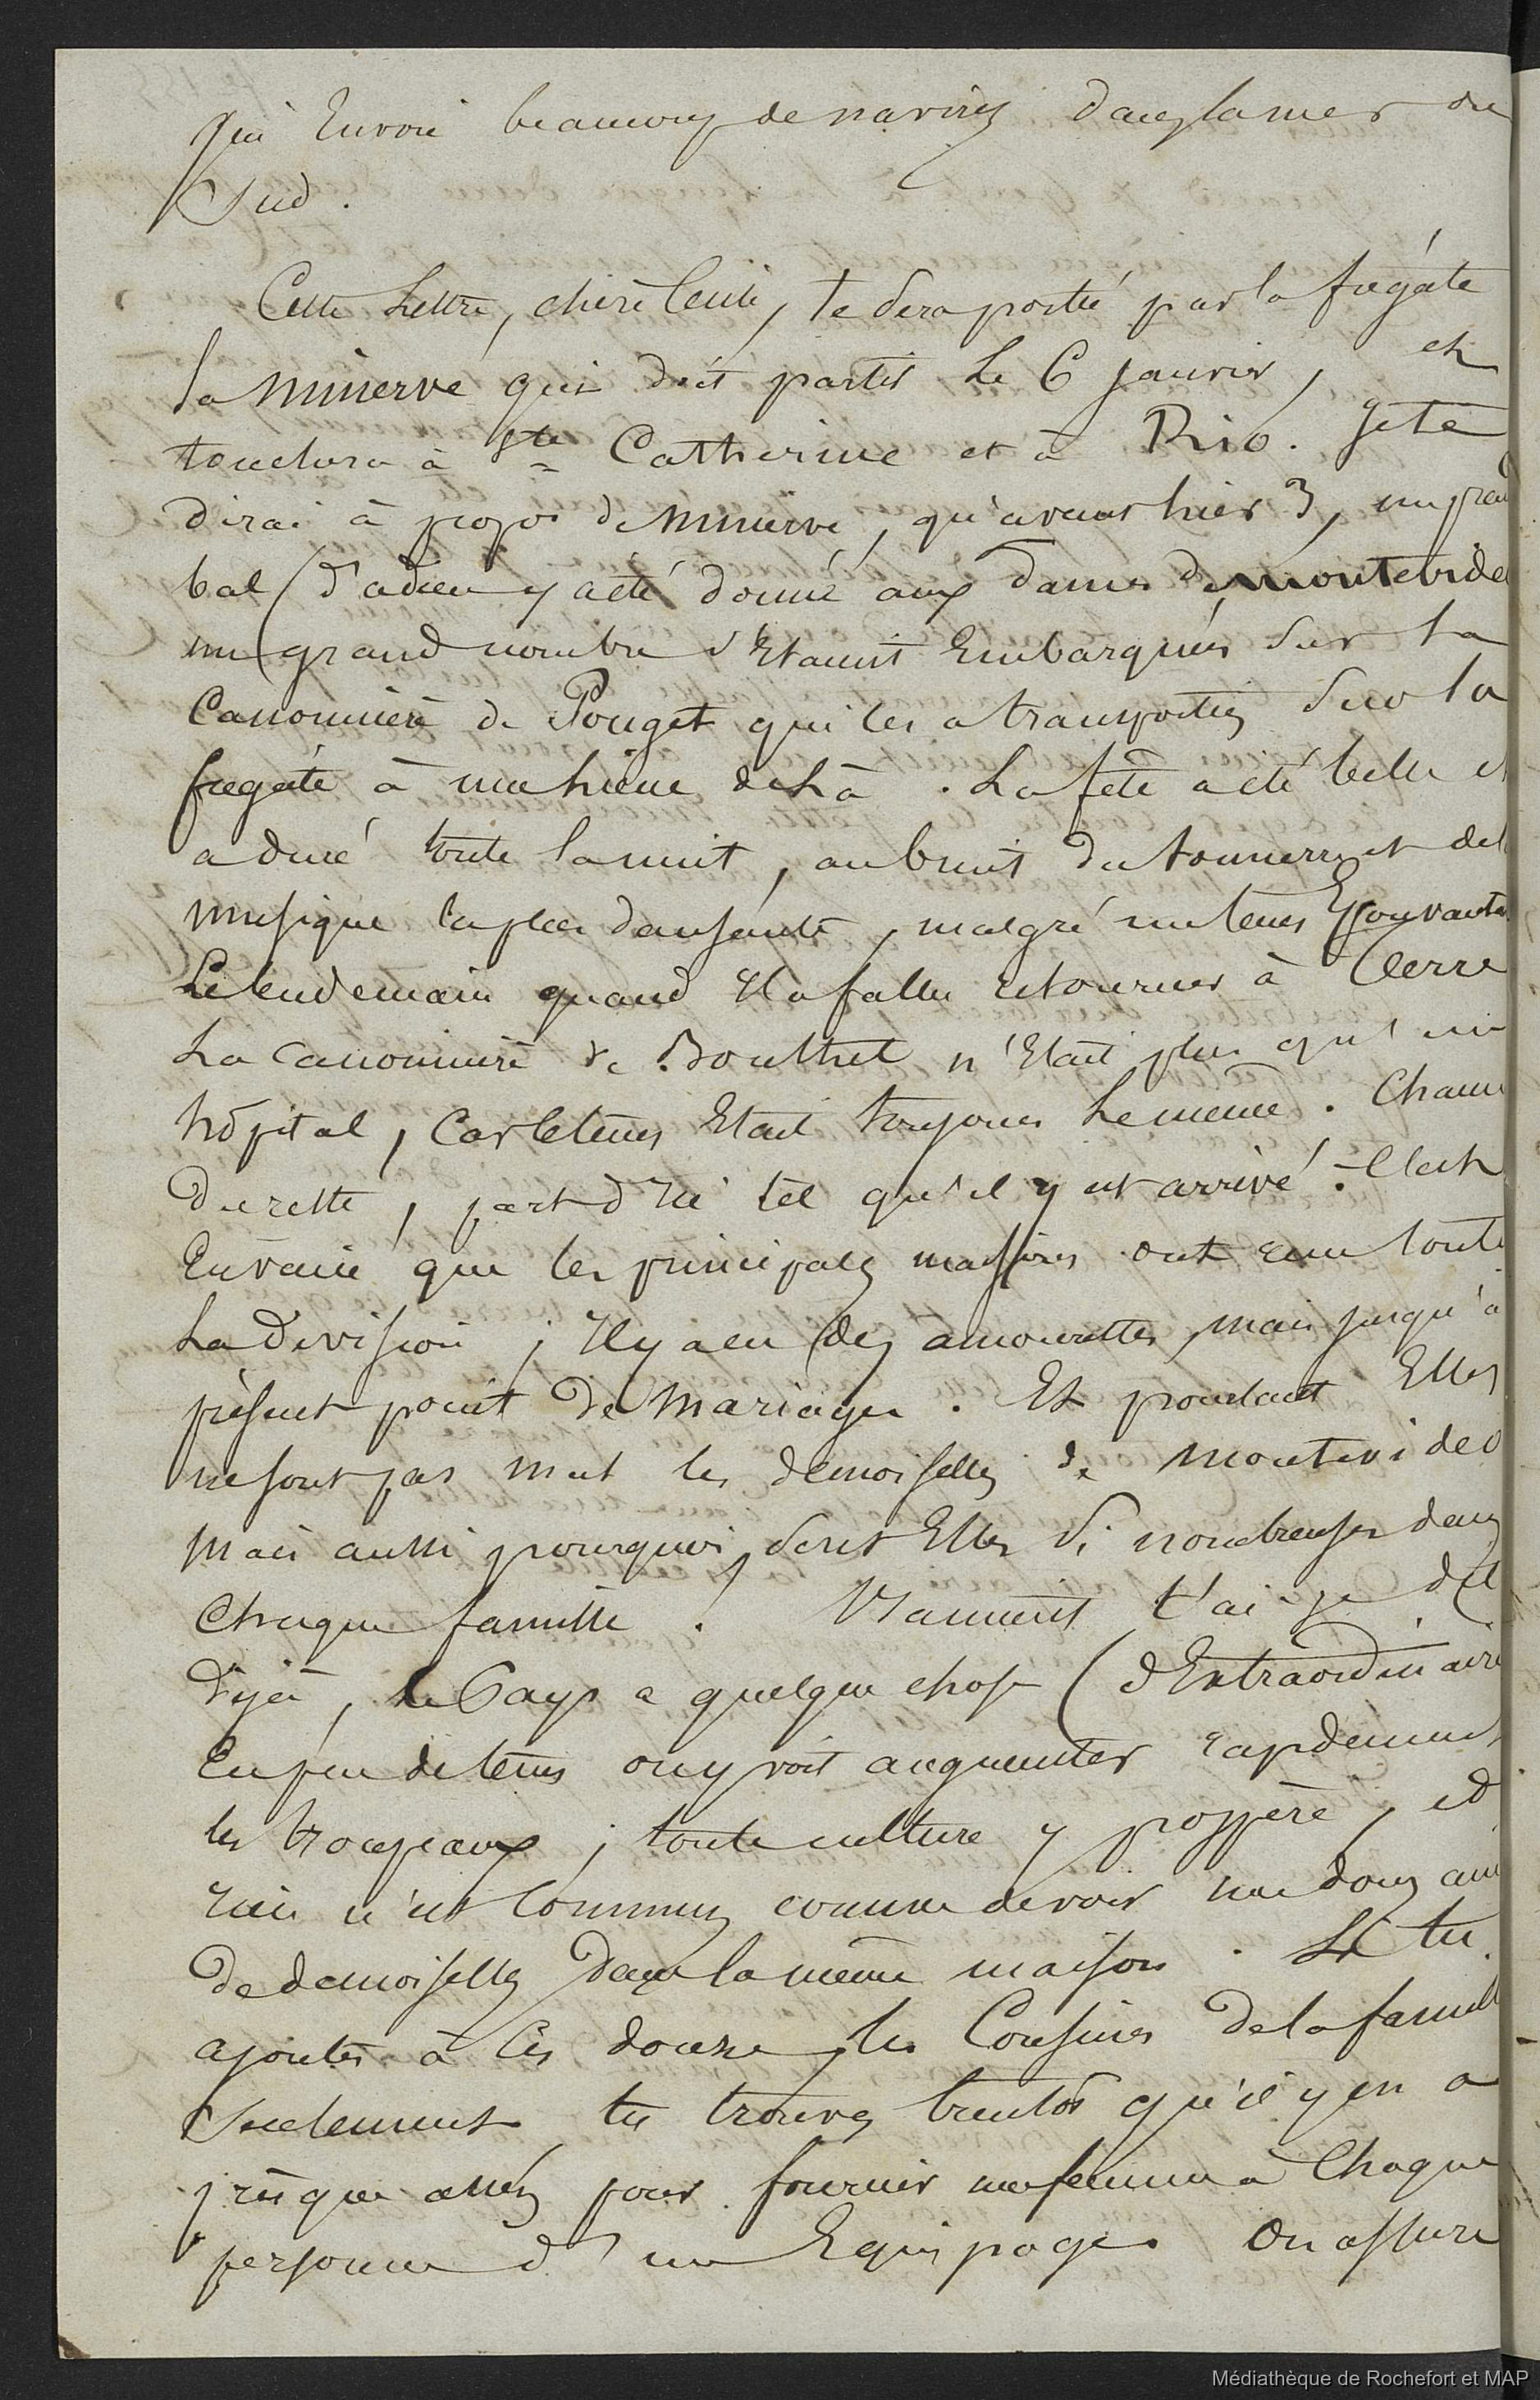 qui Envoie beaucoup de navires dans la mer du
Sud.
Cette Lettre, chère Amie, te sera portée par la frégate
la Minerve qui doit partir Le 6 Janvier, et
touchera à Ste Catherine et à Rio. Je te
dirai à propos de Minerve, qu'avant hier 3, un grand
bal d'adieu y a été donné aux Dames de Montevideo
un grand nombre s'Etaient Embarquées sur la
Canonnière de Pouget qui les a transportées sur la
frégate à une lieue de Là. La fête a été belle et
a duré toute la nuit, au bruit du tonnerre et de la
musique la plus dansante, malgré un tems Epouvantable
Le lendemain quand Il a fallu retourner à Terre
La Canonnière de n'Etait plus qu'un
hôpital, Car le tems Etait toujours Le même. Chacun
du reste, part d'Ici tel qu'il y est arrivé. C'est
En vain que les principales maisons ont reçu toute
La Division ; Il y a eu des amourettes, mais jusqu'à
présent point de Mariages. Et pourtant Elles
ne sont pas mal les demoiselles de Montevideo
Mais aussi pourquoi sont Elles si nombreuses dans
Chaque famille ! Vraiment t'ai-je dit
Déjà, le Pays a quelque chose d'Extraordinaire
En peu de tems on y voit augmenter rapidement
les troupeaux ; toute culture y prospère, et
rien n'est Commun comme de voir une douzaine
de demoiselles dans la même maison. Si tu
ajoutes à Ces douze, les Cousines de la famille
Seulement tu trouves bientôt qu'il y en a
presque assez pour fournir une femme à Chaque
personne d'un Equipage. On assure
Médiathèque de Rochefort et MAP